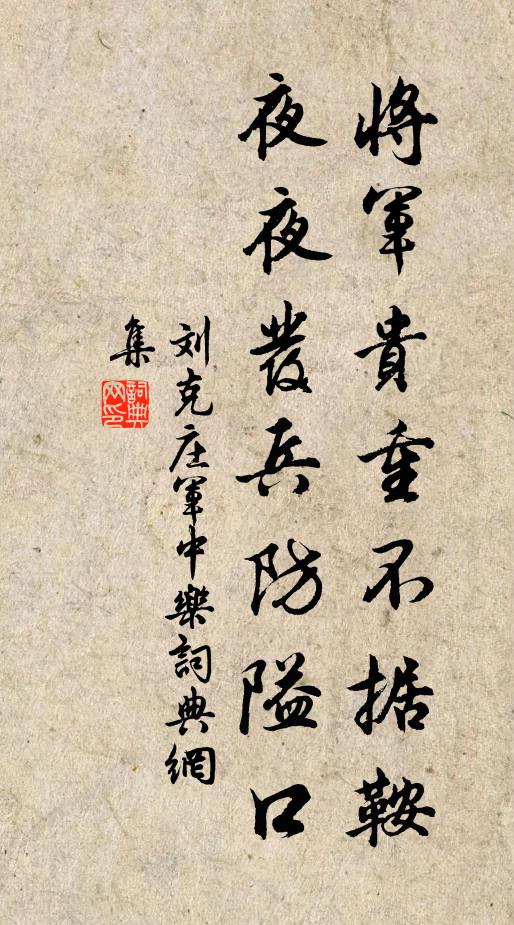 將軍貴重不据鞍
夜夜發兵防隘口
刘克庄軍中樂詞典網
集
詞典網印